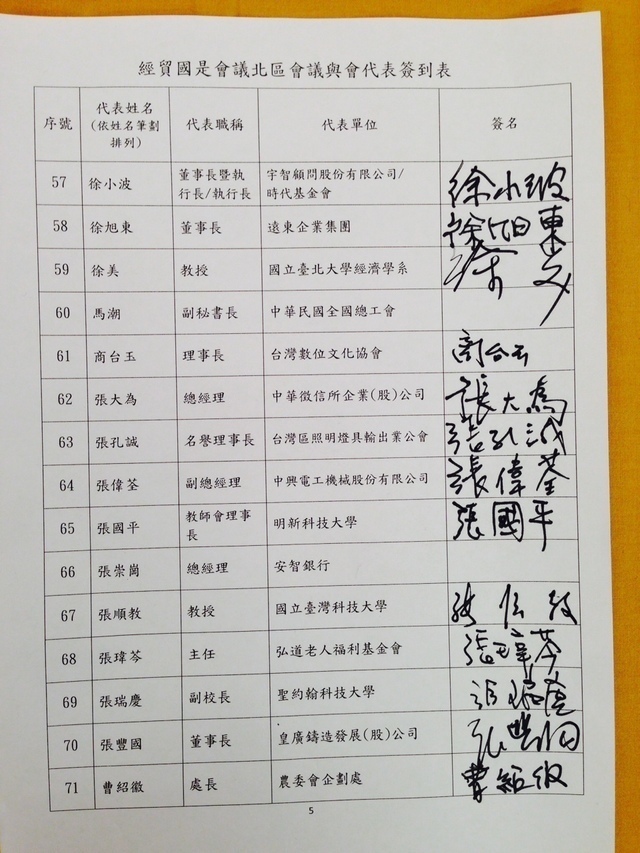 經貿國是會議北區會議與會代表簽到表
序號 代表姓名 代表職稱 代表單位 簽名
(依姓名筆劃
排列)
57 徐小波 董事長暨執 宇智顧問股份有限公司/ 徐小波
行長/執行長 時代基金會
58 徐旭東 董事長 遠東企業集團 徐旭東
59 徐美 教授 國立臺北大學經濟學系
60 馬潮 副秘書長 中華民國全國總工會
61 商台玉 理事長 台灣數位文化協會 商台玉
62 張大為 總經理 中華徵信所企業(股)公司 張大為
63 張孔誠 名譽理事長 台灣區照明燈具輸出業公會 張孔誠
64 張偉荃 副總經理 中興電工機械股份有限公司 張偉荃
65 張國平 教師會理事 明新科技大學 張國平
長
66 張崇崗 總經理 安智銀行
67 張順教 教授 國立臺灣科技大學
68 張瑋芩 主任 弘道老人福利基金會 張瑋芩
69 張瑞慶 副校長 聖約翰科技大學 張瑞慶
70 張豐國 董事長 皇廣鑄造發展(股)公司 張豐國
71 曹紹徽 處長 農委會企劃處 曹紹徽
5